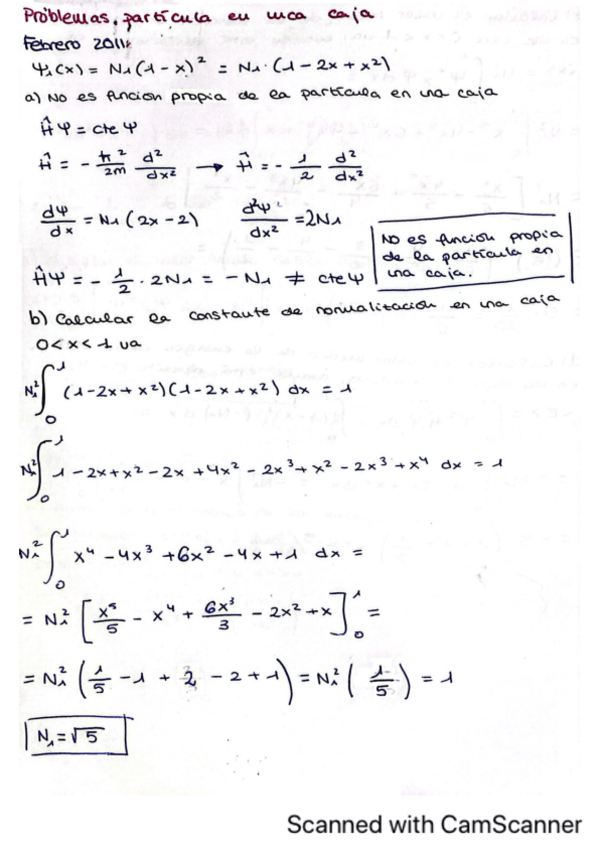 Problemas, partícula en una caja
Febrero 2011
Ψ₁(x) = N₁(1-x)² = N₁·(1-2x+x²)
a) No es función propia de la partícula en una caja
ĤΨ = cte Ψ
Ĥ = - ħ²/2m d²/dx² → Ĥ = - 1/2 d²/dx²
dΨ/dx = N₁(2x-2) d²Ψ/dx² = 2N₁
No es función propia
de la partícula en
una caja.
ĤΨ = - 1/2 · 2N₁ = - N₁ ≠ cteΨ
b) Calcular la constante de normalización en una caja
0<x<1 ua
N₁² ∫₀¹ (1-2x+x²)(1-2x+x²) dx = 1
N₁² ∫₀¹ 1-2x+x²-2x+4x²-2x³+x²-2x³+x⁴ dx = 1
N₁² ∫₀¹ x⁴-4x³+6x²-4x+1 dx =
= N₁² [x⁵/5 - x⁴ + 6x³/3 - 2x² + x]₀¹ =
= N₁² (1/5 - 1 + 2 - 2 + 1) = N₁² (1/5) = 1
N₁ = √5
Scanned with CamScanner